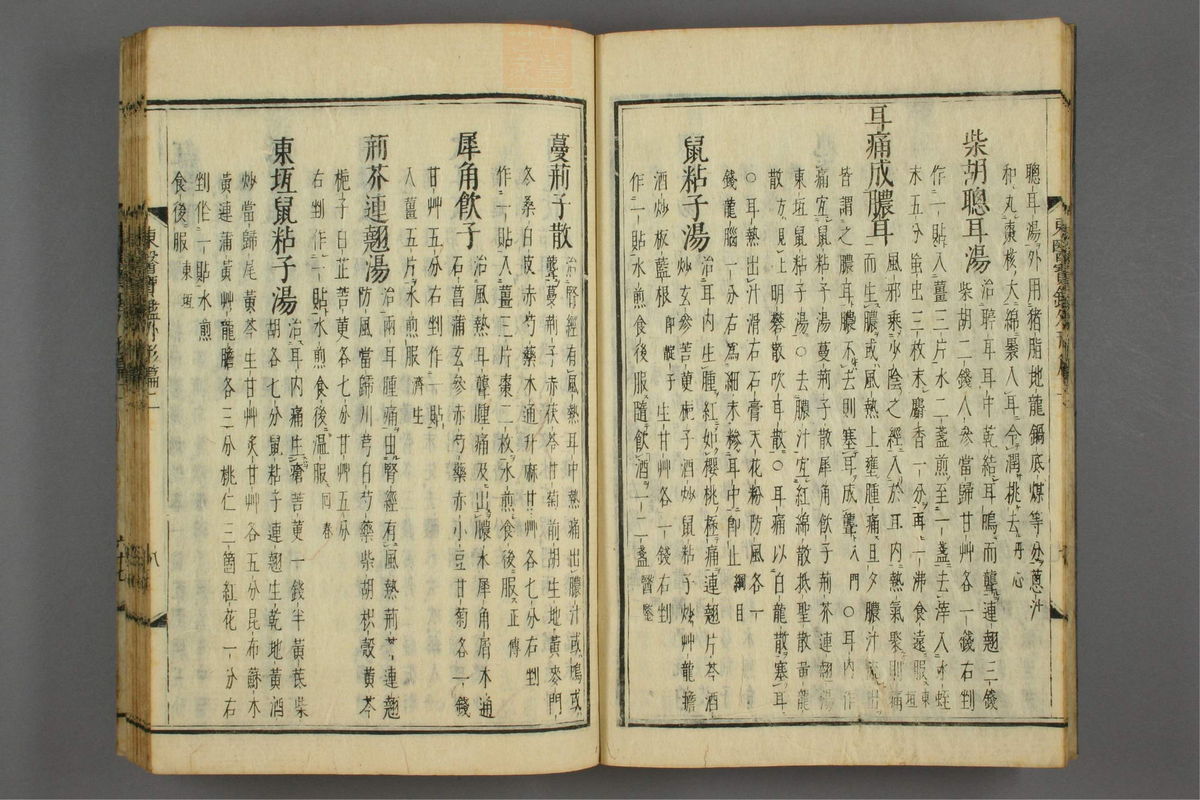 聰耳湯外用猪脂地龍鍋底煤等分葱汁
和丸棗核大綿裹入耳令潤挑去丹心
柴胡聰耳湯 治聤耳耳中乾結耳鳴而聾連翹三錢
柴胡二錢人參當歸甘艸各一錢右剉
作一貼入薑三片水二盞煎至一盞去滓入水蛭
末五分䖟虫三枚末麝香一分再一沸食遠服東垣
耳痛成膿耳 風邪乘少陰之經入於耳內熱氣聚則痛
而生膿或風熱上壅腫痛旦夕膿汁流出
皆謂之膿耳膿不去則塞耳成聾入門○耳內作
痛宜鼠粘子湯蔓荊子散犀角飲子荊芥連翹湯
東垣鼠粘子湯○去膿汁宜紅綿散抵聖散黃龍
散方見上明礬散吹耳散○耳痛以白龍散塞耳
○耳熱出汁滑石石膏天花粉防風各一
錢龍腦一分右爲細末糝耳中卽止綱目
鼠粘子湯 治耳內生腫紅如櫻桃極痛連翹片芩酒
炒玄參苦莄梔子酒炒鼠粘子炒艸龍膽
酒炒板藍根卽靛子生甘艸各一錢右剉
作一貼水煎食後服隨飮酒一二盞醫鑒
蔓荊子散 治腎經有風熱耳中熱痛出膿汁或鳴或
聾蔓荊子赤茯苓甘菊前胡生地黃麥門
冬桑白皮赤芍藥木通升麻甘艸各七分右剉
作一貼入薑三片棗二枚水煎食後服正傳
犀角飮子 治風熱耳聾腫痛及出膿水犀角屑木通
石菖蒲玄參赤芍藥赤小豆甘菊各一錢
甘艸五分右剉作一貼
入薑五片水煎服濟生
荊芥連翹湯 治兩耳腫痛出腎經有風熱荊芥連翹
防風當歸川芎白芍藥柴胡枳殼黃芩
梔子白芷苦莄各七分甘艸五分
右剉作一貼水煎食後温服回春
東垣鼠粘子湯 治耳內痛生瘡苦莄一錢半黃芪柴
胡各七分鼠粘子連翹生乾地黃酒
炒當歸尾黃芩生甘艸炙甘艸各五分昆布蘇木
黃連蒲黃艸龍膽各三分桃仁三箇紅花一分右
剉作一貼水煎
食後服東垣
東醫寶鑑外形篇二